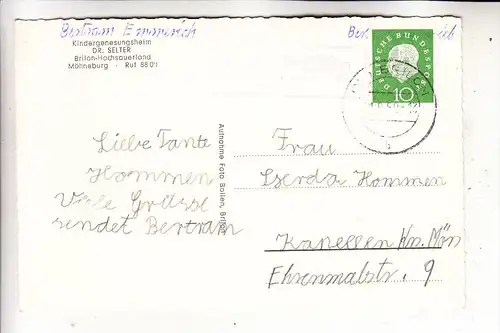 Bertram Emmerich
Kindergenesungsheim
DR. SELTER
Brilon-Hochsauerland
Möhneburg · Ruf 8801
Liebe Tante
Hommen
Viele Grüsse
sendet Bertram
Aufnahme Foto Bollen, Brilon
Ber.
DEUTSCHE BUNDESPOST
10
Frau
Gerda Hommen
Kapellen Krs. Mörs
Ehrenmalstr. 9